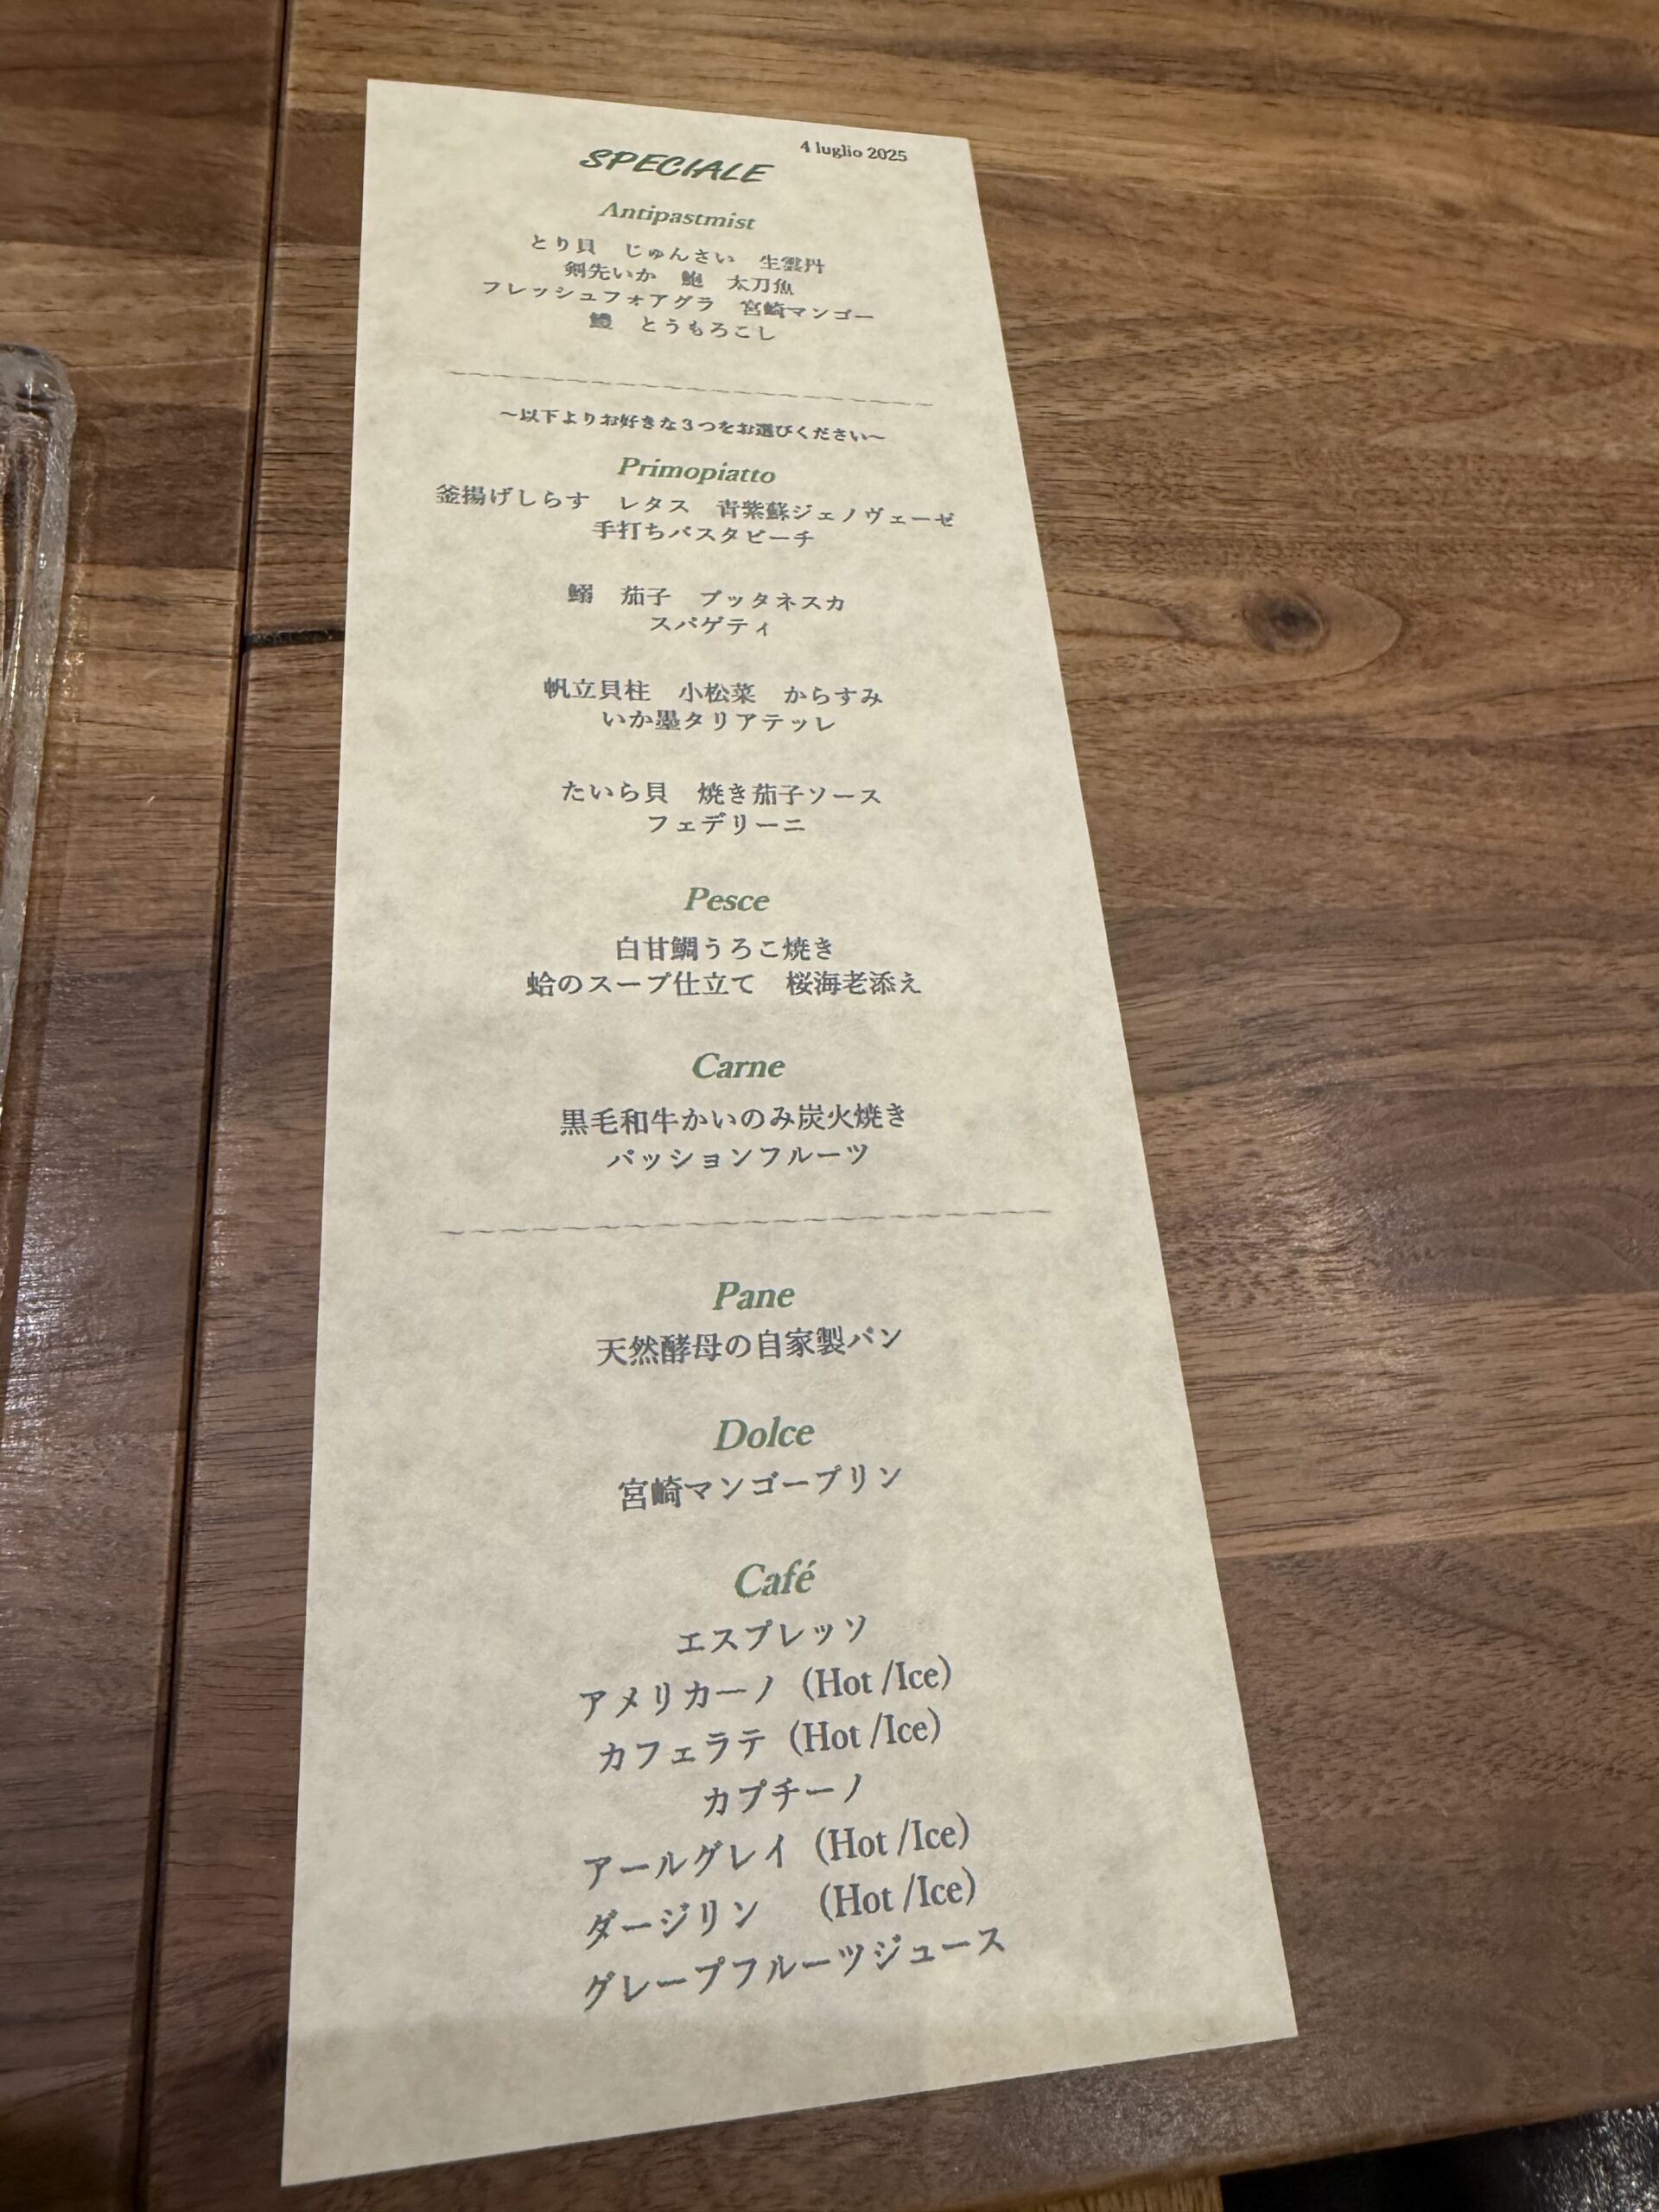 4 luglio 2025
SPECIALE
Antipastmist
とり貝　じゅんさい　生雲丹
剣先いか　鮑　太刀魚
フレッシュフォアグラ　宮崎マンゴー
鱧　とうもろこし
～以下よりお好きな３つをお選びください～
Primopiatto
釜揚げしらす　レタス　青紫蘇ジェノヴェーゼ
手打ちパスタピーチ
鰯　茄子　プッタネスカ
スパゲティ
帆立貝柱　小松菜　からすみ
いか墨タリアテッレ
たいら貝　焼き茄子ソース
フェデリーニ
Pesce
白甘鯛うろこ焼き
蛤のスープ仕立て　桜海老添え
Carne
黒毛和牛かいのみ炭火焼き
パッションフルーツ
Pane
天然酵母の自家製パン
Dolce
宮崎マンゴープリン
Café
エスプレッソ
アメリカーノ (Hot /Ice)
カフェラテ (Hot /Ice)
カプチーノ
アールグレイ (Hot /Ice)
ダージリン　(Hot /Ice)
グレープフルーツジュース